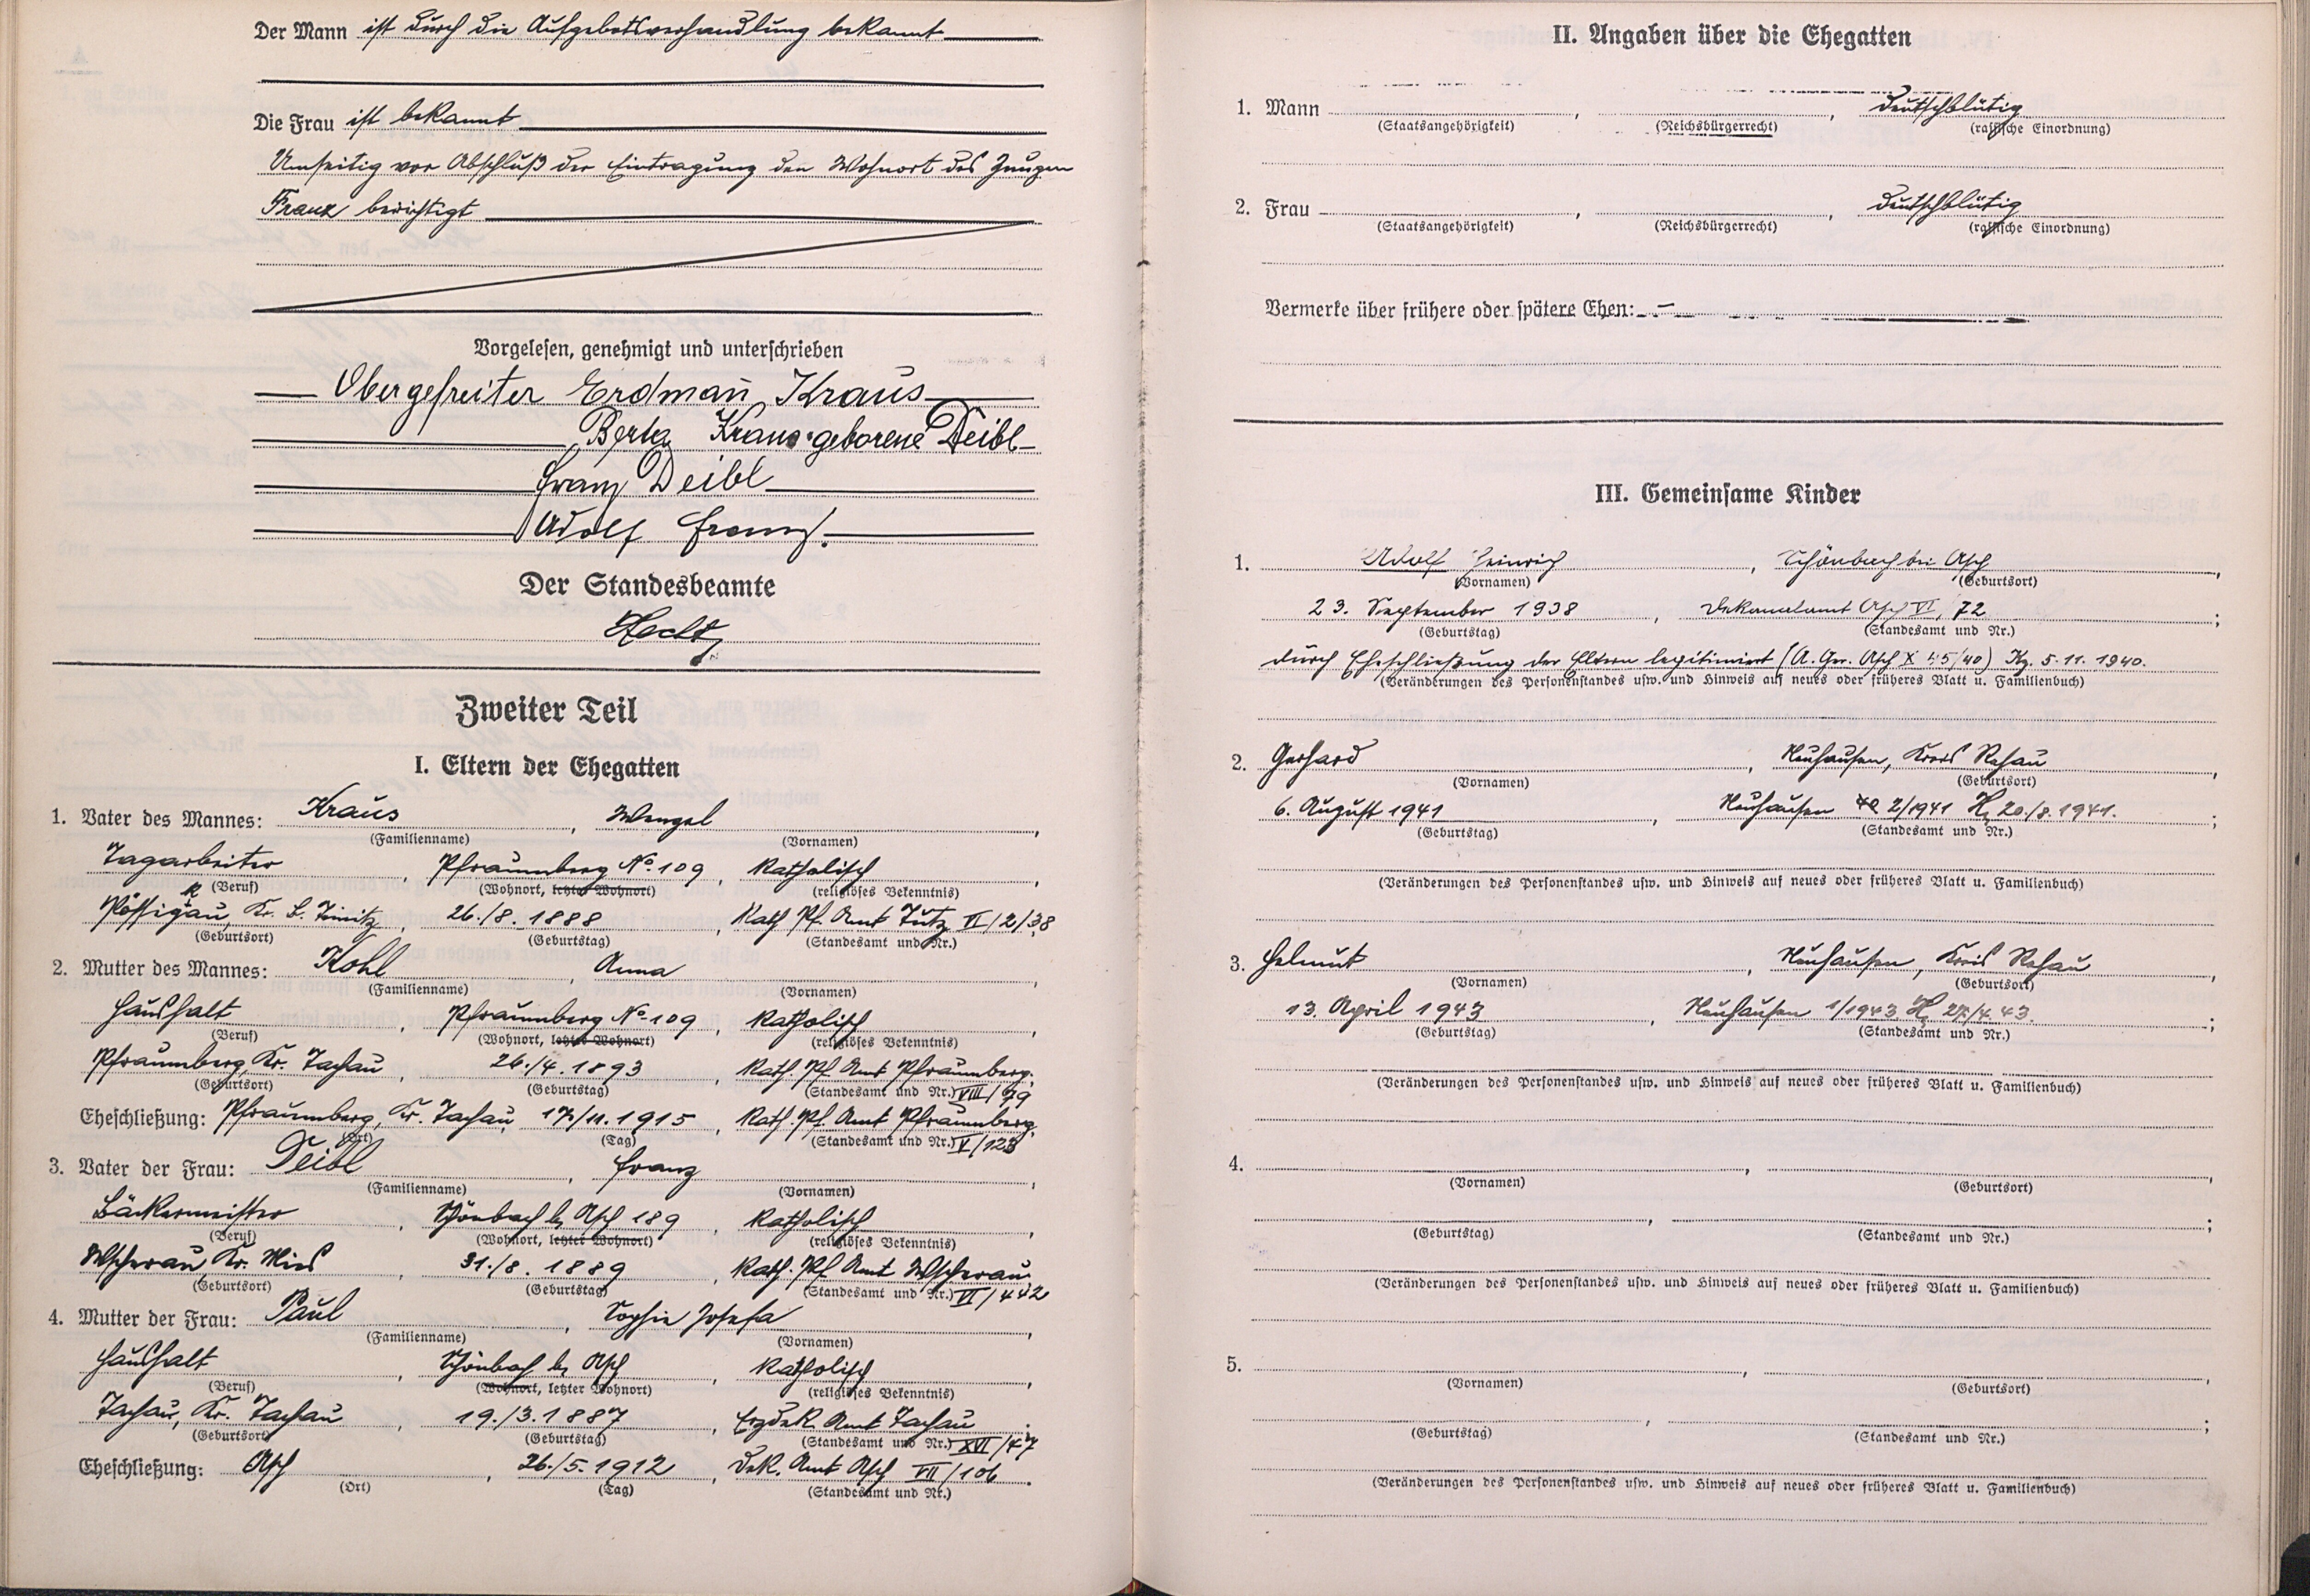 Der Mann ist durch die Aufgebotsverhandlung bekannt
Die Frau ist bekannt
Umseitig vor Abschluß der Eintragung den Wohnort des Zeugen
Franz berichtigt
Vorgelesen, genehmigt und unterschrieben
Obergefreiter Erdmañ Kraus
Berta Kraus geborene Deibl
Franz Deibl
Adolf Franz.
Der Standesbeamte
Zweiter Teil
I. Eltern der Ehegatten
1. Vater des Mannes: Kraus, Wenzel,
(Familienname) (Vornamen)
Tagarbeiter, Pfraumberg No. 109, katholisch,
(Beruf) (Wohnort, letzter Wohnort) (religiöses Bekenntnis)
26./8. 1888, Kath. Pf. Amt VI/2/38
(Geburtsort) (Geburtstag) (Standesamt und Nr.)
2. Mutter des Mannes: Kohl, Anna
(Familienname) (Vornamen)
Haushalt, Pfraumberg No. 109, katholisch,
(Beruf) (Wohnort, letzter Wohnort) (religiöses Bekenntnis)
Pfraumberg, Kr. Tachau, 26./4. 1893, Kath. Pf. Amt Pfraumberg.
(Geburtsort) (Geburtstag) (Standesamt und Nr.) VIII/79
Eheschließung: Pfraumberg, Kr. Tachau, 17./11. 1915, Kath. Pf. Amt Pfraumberg.
(Ort) (Tag) (Standesamt und Nr.) V/123
3. Vater der Frau: Deibl, Franz,
(Familienname) (Vornamen)
Bäckermeister, Schönbach b. Asch 189, katholisch,
(Beruf) (Wohnort, letzter Wohnort) (religiöses Bekenntnis)
Wscherau, Kr. Mies, 31./8. 1889, Kath. Pf. Amt Wscherau
(Geburtsort) (Geburtstag) (Standesamt und Nr.) VI/442
4. Mutter der Frau: Paul, Sophie Josefa,
(Familienname) (Vornamen)
Haushalt, Schönbach b. Asch, katholisch,
(Beruf) (Wohnort, letzter Wohnort) (religiöses Bekenntnis)
Tachau, Kr. Tachau, 19./3. 1887, Erzdek. Amt Tachau
(Geburtsort) (Geburtstag) (Standesamt und Nr.) XVI/47
Eheschließung: Asch, 26./5. 1912, Dek. Amt Asch VII/106.
(Ort) (Tag) (Standesamt und Nr.)
II. Angaben über die Ehegatten
1. Mann , , deutschblütig
(Staatsangehörigkeit) (Reichsbürgerrecht) (rassische Einordnung)
2. Frau , , deutschblütig
(Staatsangehörigkeit) (Reichsbürgerrecht) (rassische Einordnung)
Vermerke über frühere oder spätere Ehen: —
III. Gemeinsame Kinder
1. Adolf Heinrich, Schönbach bei Asch,
(Vornamen) (Geburtsort)
23. September 1938, Dekanalamt Asch VI, 72;
(Geburtstag) (Standesamt und Nr.)
durch Eheschließung der Eltern legitimiert (A. Ger. Asch X 45/40) 5.11.1940.
(Veränderungen des Personenstandes usw. und Hinweis auf neues oder früheres Blatt u. Familienbuch)
2. Gerhard, Neuhausen, Kreis Rehau,
(Vornamen) (Geburtsort)
6. August 1941, Neuhausen 2/1941 20./8. 1941.;
(Geburtstag) (Standesamt und Nr.)
(Veränderungen des Personenstandes usw. und Hinweis auf neues oder früheres Blatt u. Familienbuch)
3. Helmut, Neuhausen, Kreis Rehau,
(Vornamen) (Geburtsort)
13. April 1943, Neuhausen 1/1943 27/4. 43.;
(Geburtstag) (Standesamt und Nr.)
(Veränderungen des Personenstandes usw. und Hinweis auf neues oder früheres Blatt u. Familienbuch)
4. , ,
(Vornamen) (Geburtsort)
, ;
(Geburtstag) (Standesamt und Nr.)
(Veränderungen des Personenstandes usw. und Hinweis auf neues oder früheres Blatt u. Familienbuch)
5. , ,
(Vornamen) (Geburtsort)
, ;
(Geburtstag) (Standesamt und Nr.)
(Veränderungen des Personenstandes usw. und Hinweis auf neues oder früheres Blatt u. Familienbuch)